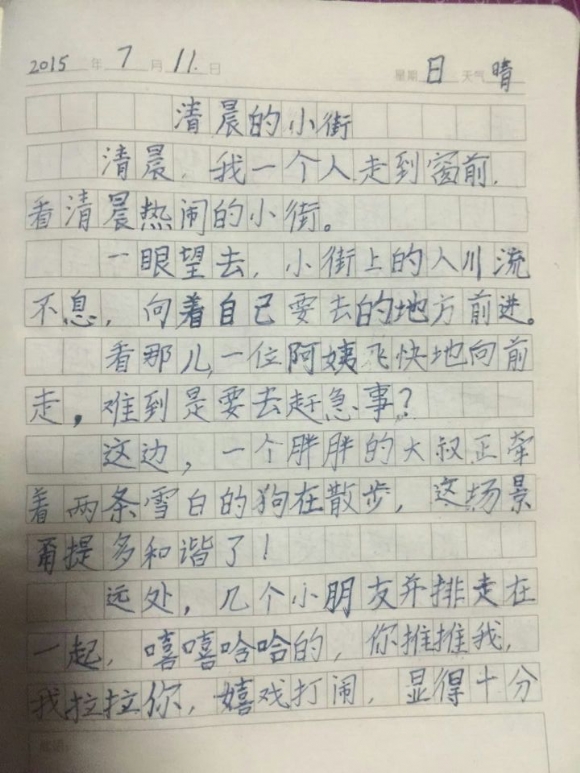 2015年7月11.日 星期日天气晴
清晨的小街
清晨,我一个人走到窗前,
看清晨热闹的小街。
一眼望去,小街上的人川流
不息,向着自己要去的地方前进。
看那儿,一位阿姨飞快地向前
走,难到是要去赶急事?
这边,一个胖胖的大叔正牵
着两条雪白的狗在散步,这场景
甭提多和谐了!
远处,几个小朋友并排走在
一起,嘻嘻哈哈的,你推推我,
我拉拉你,嬉戏打闹,显得十分